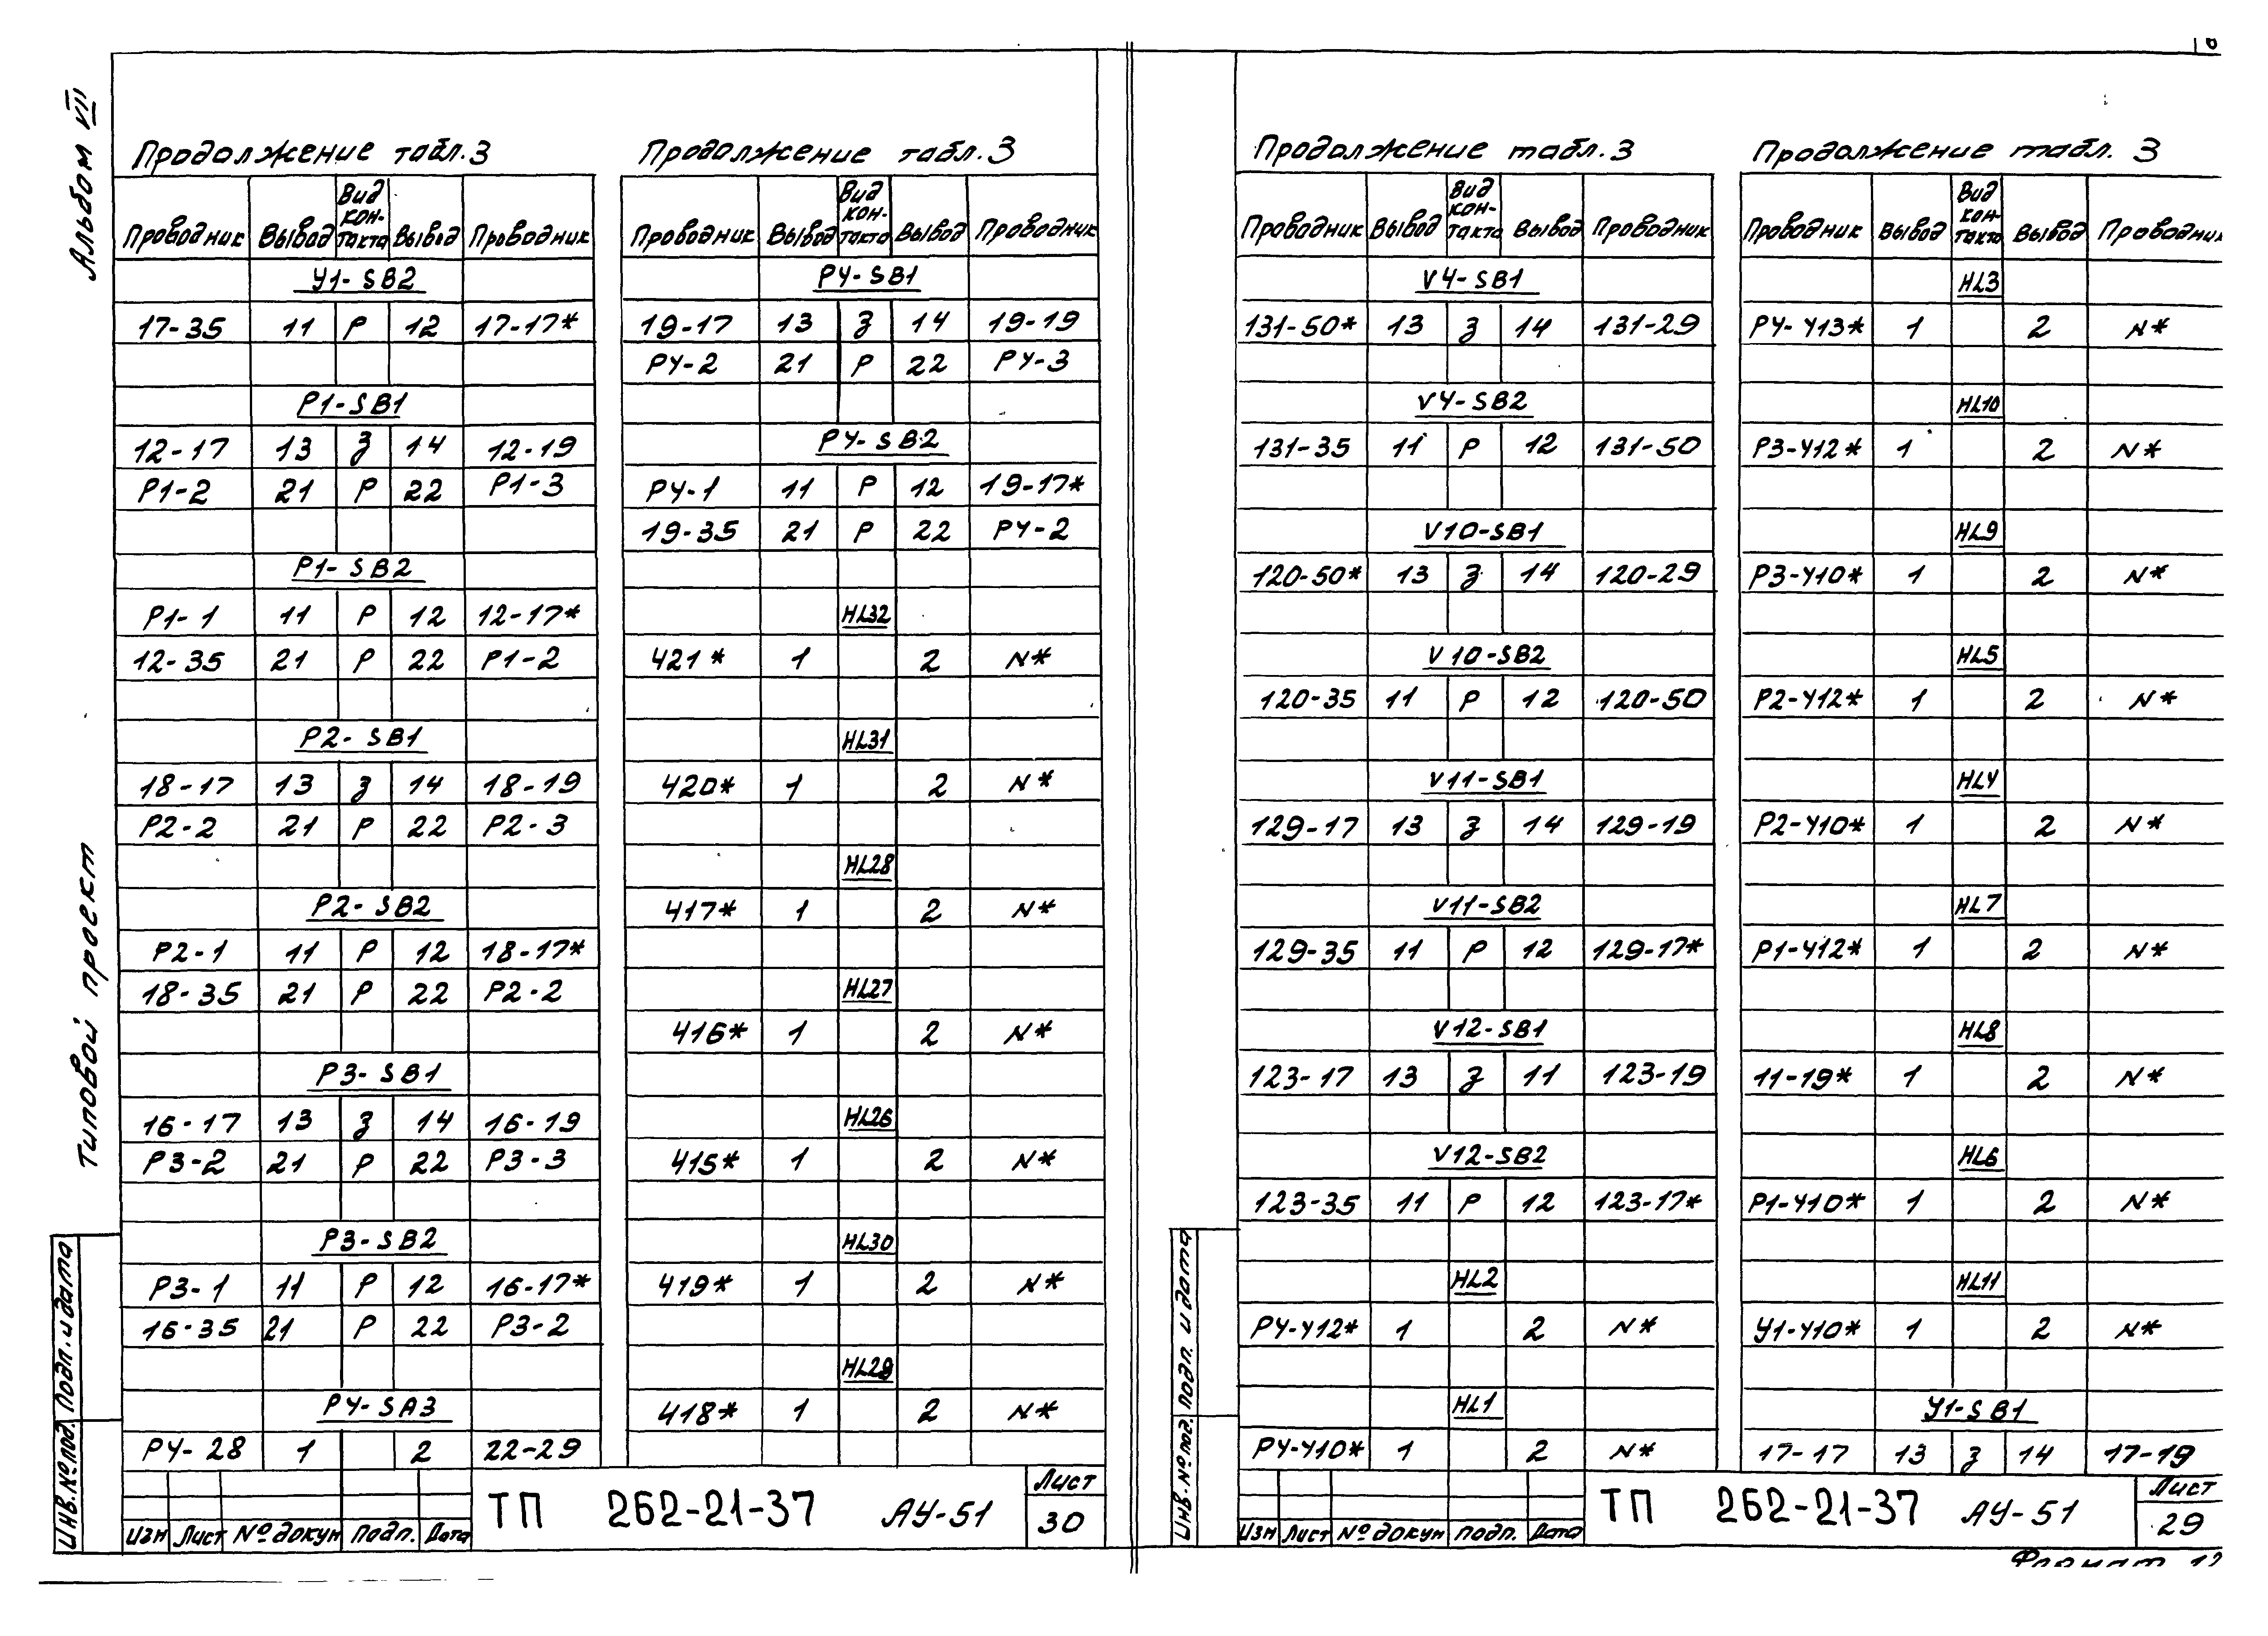 Альбом VII
Типовой проект
Подп. и дата
Инв. № под.
Продолжение табл. 3
Проводник Вывод Вид контакта Вывод Проводник
У1-SB2
17-35 11 Р 12 17-17*
Р1-SB1
12-17 13 З 14 12-19
Р1-2 21 Р 22 Р1-3
Р1-SB2
Р1-1 11 Р 12 12-17*
12-35 21 Р 22 Р1-2
Р2-SB1
18-17 13 З 14 18-19
Р2-2 21 Р 22 Р2-3
Р2-SB2
Р2-1 11 Р 12 18-17*
18-35 21 Р 22 Р2-2
Р3-SB1
16-17 13 З 14 16-19
Р3-2 21 Р 22 Р3-3
Р3-SB2
Р3-1 11 Р 12 16-17*
16-35 21 Р 22 Р3-2
Р4-SA3
Р4-28 1 2 22-29
Продолжение табл. 3
Проводник Вывод Вид кон-такта Вывод Проводник
Р4-SB1
19-17 13 З 14 19-19
Р4-2 21 Р 22 Р4-3
Р4-SB2
Р4-1 11 Р 12 19-17*
19-35 21 Р 22 Р4-2
HL32
421* 1 2 N*
HL31
420* 1 2 N*
HL28
417* 1 2 N*
HL27
416* 1 2 N*
HL26
415* 1 2 N*
HL30
419* 1 2 N*
HL29
418* 1 2 N*
Изм Лист № докум Подп. Дата
ТП 262-21-37 АУ-51
Лист
30
Подп. и дата
Инв. № под.
Продолжение табл. 3
Проводник Вывод Вид кон-такта Вывод Проводник
V4-SB1
131-50* 13 З 14 131-29
V4-SB2
131-35 11 Р 12 131-50
V10-SB1
120-50* 13 З 14 120-29
V10-SB2
120-35 11 Р 12 120-50
V11-SB1
129-17 13 З 14 129-19
V11-SB2
129-35 11 Р 12 129-17*
V12-SB1
123-17 13 З 11 123-19
V12-SB2
123-35 11 Р 12 123-17*
HL2
Р4-412* 1 2 N*
HL1
Р4-410* 1 2 N*
Продолжение табл. 3
Проводник Вывод Вид кон-такта Вывод Проводник
HL3
Р4-413* 1 2 N*
HL10
Р3-412* 1 2 N*
HL9
Р3-410* 1 2 N*
HL5
Р2-412* 1 2 N*
HL4
Р2-410* 1 2 N*
HL7
Р1-412* 1 2 N*
HL8
11-19* 1 2 N*
HL6
Р1-410* 1 2 N*
HL11
У1-410* 1 2 N*
У1-SB1
17-17 13 З 14 17-19
Изм Лист № докум Подп. Дата
ТП 262-21-37 АУ-51
Лист
29
Формат 12